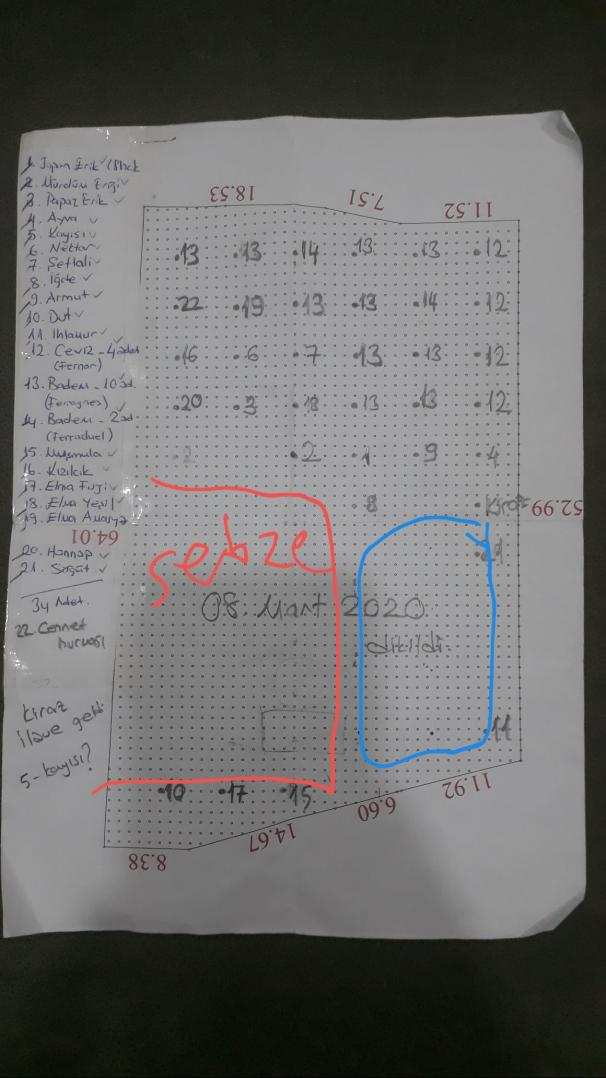 1. Japon Erik (Black
2. Mürdüm Eriği
3. Papaz Erik
4. Ayva
5. Kayısı
6. Nektar
7. Şeftali
8. İğde
9. Armut
10. Dut
11. Ihlamur
12. Ceviz - 4 adet
(Fernor)
13. Badem - 10 ad.
(Ferragnes)
14. Badem - 2 ad.
(Ferraduel)
15. Muşmula
16. Kızılcık
17. Elma Fuji
18. Elma Yeşil
19. Elma Amasya
20. Hannap
21. Söğüt
34 Adet.
22 Cennet
hurması
Kiraz
ilave geldi
5-kayısı?
18.53 7.51 11.52
.13 .13 .14 .13 .13 .12
.22 .19 .13 .13 .14 .12
.16 .6 .7 .13 .13 .12
.20 .3 .18 .13 .13 .12
.2 .2 .1 .9 .4
.8 .Kiraz
52.99
64.01
sebze
.21
08. Mart 2020
dikildi.
.11
.10 .17 .15
8.38 14.67 6.60 11.92